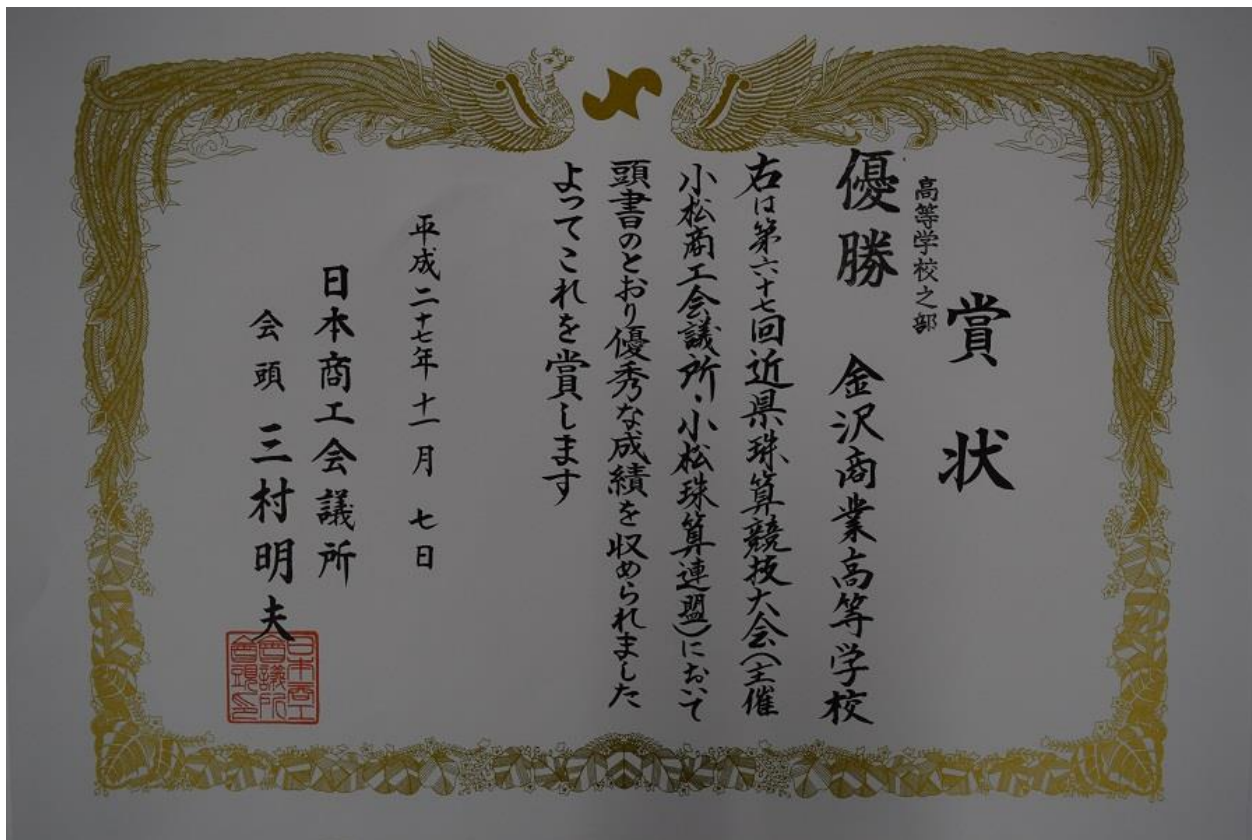 賞状
高等学校之部
優勝 金沢商業高等学校
右は第六十七回近県珠算競技大会(主催
小松商工会議所・小松珠算連盟)において
頭書のとおり優秀な成績を収められました
よってこれを賞します
平成二十七年十一月七日
日本商工会議所
会頭 三村明夫
日本商工
會議所
會頭之印